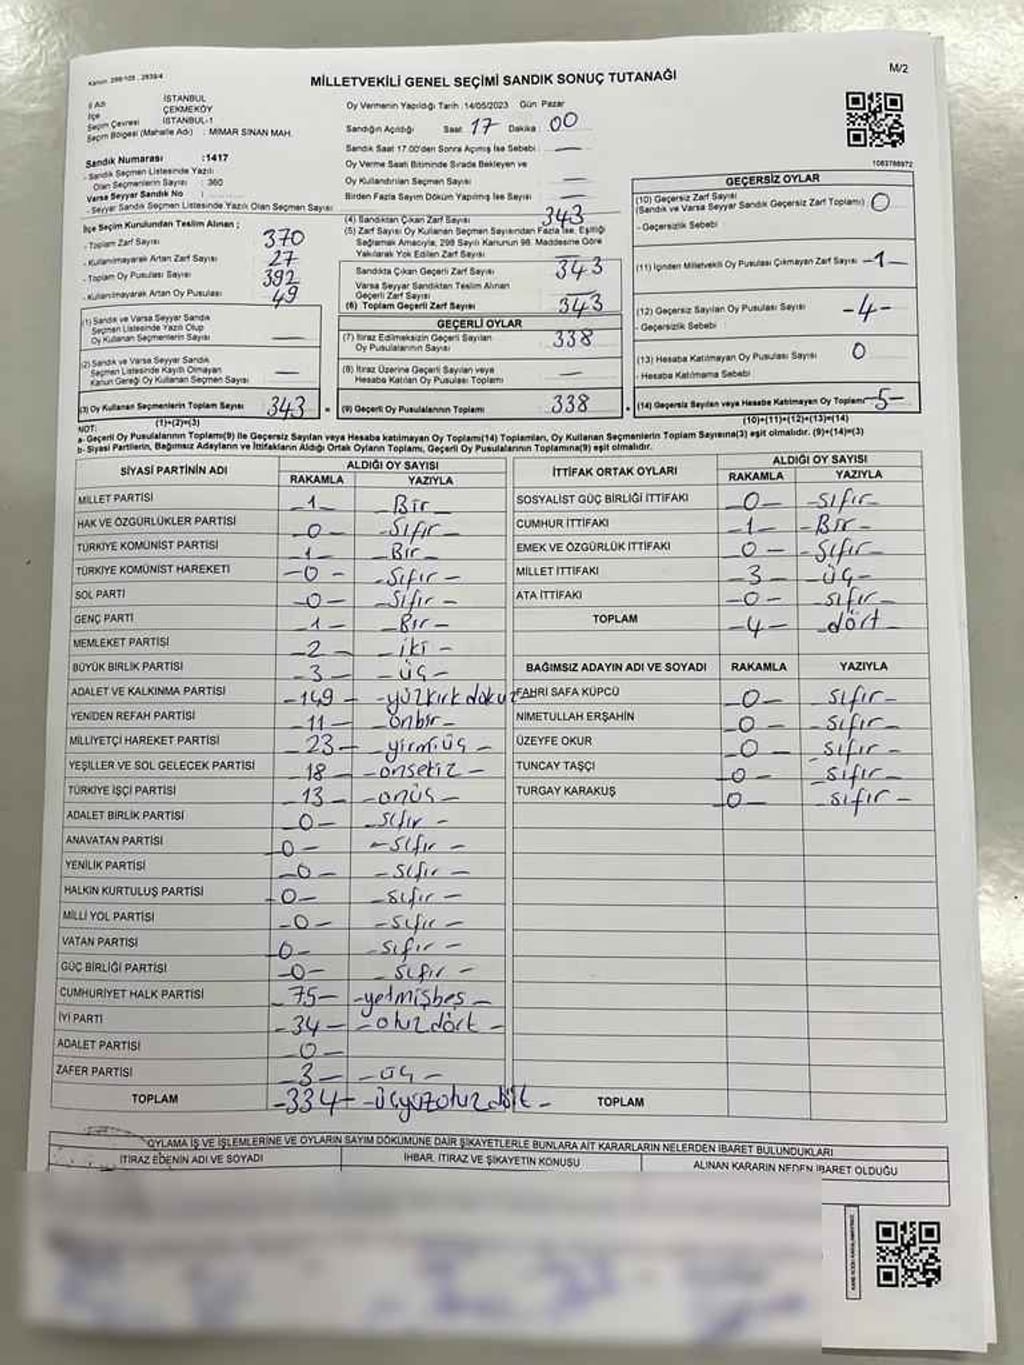 Kanun: 298/105 , 2839/4
MİLLETVEKİLİ GENEL SEÇİMİ SANDIK SONUÇ TUTANAĞI
M/2
İl Adı İSTANBUL
İlçe ÇEKMEKÖY
Seçim Çevresi İSTANBUL-1
Seçim Bölgesi (Mahalle Adı) : MIMAR SINAN MAH.
Sandık Numarası :1417
- Sandık Seçmen Listesinde Yazılı
Olan Seçmenlerin Sayısı : 360
Varsa Seyyar Sandık No :
- Seyyar Sandık Seçmen Listesinde Yazılı Olan Seçmen Sayısı :
Oy Vermenin Yapıldığı Tarih :14/05/2023 Gün Pazar
Sandığın Açıldığı Saat 17 Dakika 00
Sandık Saat 17.00'den Sonra Açılmış İse Sebebi : —
Oy Verme Saati Bitiminde Sırada Bekleyen ve
Oy Kullandırılan Seçmen Sayısı —
Birden Fazla Sayım Döküm Yapılmış İse Sayısı —
1083788972
İlçe Seçim Kurulundan Teslim Alınan ;
- Toplam Zarf Sayısı 370
- Kullanılmayarak Artan Zarf Sayısı 27
- Toplam Oy Pusulası Sayısı 392
- Kullanılmayarak Artan Oy Pusulası 49
(1) Sandık ve Varsa Seyyar Sandık
Seçmen Listesinde Yazılı Olup
Oy Kullanan Seçmenlerin Sayısı —
(2) Sandık ve Varsa Seyyar Sandık
Seçmen Listesinde Kayıtlı Olmayan
Kanun Gereği Oy Kullanan Seçmen Sayısı —
(3) Oy Kullanan Seçmenlerin Toplam Sayısı 343
(1)+(2)=(3)
(4) Sandıktan Çıkan Zarf Sayısı 343
(5) Zarf Sayısı Oy Kullanan Seçmen Sayısından Fazla İse, Eşitliği
Sağlamak Amacıyla, 298 Sayılı Kanunun 98. Maddesine Göre
Yakılarak Yok Edilen Zarf Sayısı —
Sandıkta Çıkan Geçerli Zarf Sayısı 343
Varsa Seyyar Sandıktan Teslim Alınan
Geçerli Zarf Sayısı —
(6) Toplam Geçerli Zarf Sayısı 343
GEÇERLİ OYLAR
(7) İtiraz Edilmeksizin Geçerli Sayılan
Oy Pusulalarının Sayısı 338
(8) İtiraz Üzerine Geçerli Sayılan veya
Hesaba Katılan Oy Pusulaları Toplamı —
= (9) Geçerli Oy Pusulalarının Toplamı 338
GEÇERSİZ OYLAR
(10) Geçersiz Zarf Sayısı
(Sandık ve Varsa Seyyar Sandık Geçersiz Zarf Toplamı) 0
- Geçersizlik Sebebi
(11) İçinden Milletvekili Oy Pusulası Çıkmayan Zarf Sayısı -1-
(12) Geçersiz Sayılan Oy Pusulası Sayısı -4-
- Geçersizlik Sebebi
(13) Hesaba Katılmayan Oy Pusulası Sayısı 0
- Hesaba Katılmama Sebebi
+ (14) Geçersiz Sayılan veya Hesaba Katılmayan Oy Toplamı -5-
(10)+(11)+(12)+(13)=(14)
NOT:
a- Geçerli Oy Pusulalarının Toplamı(9) ile Geçersiz Sayılan veya Hesaba katılmayan Oy Toplamı(14) Toplamları, Oy Kullanan Seçmenlerin Toplam Sayısına(3) eşit olmalıdır. (9)+(14)=(3)
b- Siyasi Partilerin, Bağımsız Adayların ve İttifakların Aldığı Ortak Oyların Toplamı, Geçerli Oy Pusulalarının Toplamına(9) eşit olmalıdır.
SİYASİ PARTİNİN ADI ALDIĞI OY SAYISI
RAKAMLA YAZIYLA
MİLLET PARTİSİ -1- -Bir-
HAK VE ÖZGÜRLÜKLER PARTİSİ -0- -Sıfır-
TÜRKİYE KOMÜNİST PARTİSİ -1- -Bir-
TÜRKİYE KOMÜNİST HAREKETİ -0- -Sıfır-
SOL PARTİ -0- -Sıfır-
GENÇ PARTİ -1- -Bir-
MEMLEKET PARTİSİ -2- -iki-
BÜYÜK BİRLİK PARTİSİ -3- -üç-
ADALET VE KALKINMA PARTİSİ -149- -yüzkırkdokuz
YENİDEN REFAH PARTİSİ -11- -onbir-
MİLLİYETÇİ HAREKET PARTİSİ -23- -yirmiüç-
YEŞİLLER VE SOL GELECEK PARTİSİ -18- -onsekiz-
TÜRKİYE İŞÇİ PARTİSİ -13- -onüç-
ADALET BİRLİK PARTİSİ -0- -sıfır-
ANAVATAN PARTİSİ -0- -sıfır-
YENİLİK PARTİSİ -0- -sıfır-
HALKIN KURTULUŞ PARTİSİ -0- -sıfır-
MİLLİ YOL PARTİSİ -0- -sıfır-
VATAN PARTİSİ -0- -sıfır-
GÜÇ BİRLİĞİ PARTİSİ -0- -sıfır-
CUMHURİYET HALK PARTİSİ -75- -yetmişbeş-
İYİ PARTİ -34- -otuzdört-
ADALET PARTİSİ -0-
ZAFER PARTİSİ -3- -üç-
TOPLAM -334- -üçyüzotuzdört-
İTTİFAK ORTAK OYLARI ALDIĞI OY SAYISI
RAKAMLA YAZIYLA
SOSYALİST GÜÇ BİRLİĞİ İTTİFAKI -0- -sıfır-
CUMHUR İTTİFAKI -1- -Bir-
EMEK VE ÖZGÜRLÜK İTTİFAKI -0- -sıfır-
MİLLET İTTİFAKI -3- -üç-
ATA İTTİFAKI -0- -sıfır-
TOPLAM -4- -dört-
BAĞIMSIZ ADAYIN ADI VE SOYADI RAKAMLA YAZIYLA
FAHRİ SAFA KÜPCÜ -0- sıfır-
NİMETULLAH ERŞAHİN -0- -sıfır-
ÜZEYFE OKUR -0- -sıfır-
TUNCAY TAŞÇI -0- -sıfır-
TURGAY KARAKUŞ -0- -sıfır-
TOPLAM
OYLAMA İŞ VE İŞLEMLERİNE VE OYLARIN SAYIM DÖKÜMÜNE DAİR ŞİKAYETLERLE BUNLARA AİT KARARLARIN NELERDEN İBARET BULUNDUKLARI
İTİRAZ EDENİN ADI VE SOYADI İHBAR, İTİRAZ VE ŞİKAYETİN KONUSU ALINAN KARARIN NEDEN İBARET OLDUĞU